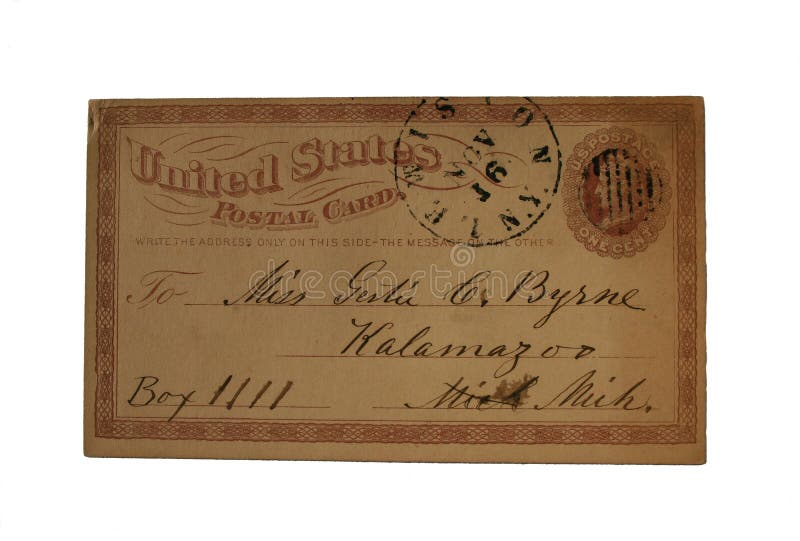 United States
POSTAL CARD
WRITE THE ADDRESS ONLY ON THIS SIDE—THE MESSAGE ON THE OTHER
To Miss Gertie C. Byrne
Kalamazoo
Box 1111 Mich Mich.
LEWISTON N.Y.
NOV
U.S. POSTAGE
ONE CENT
dreamstime